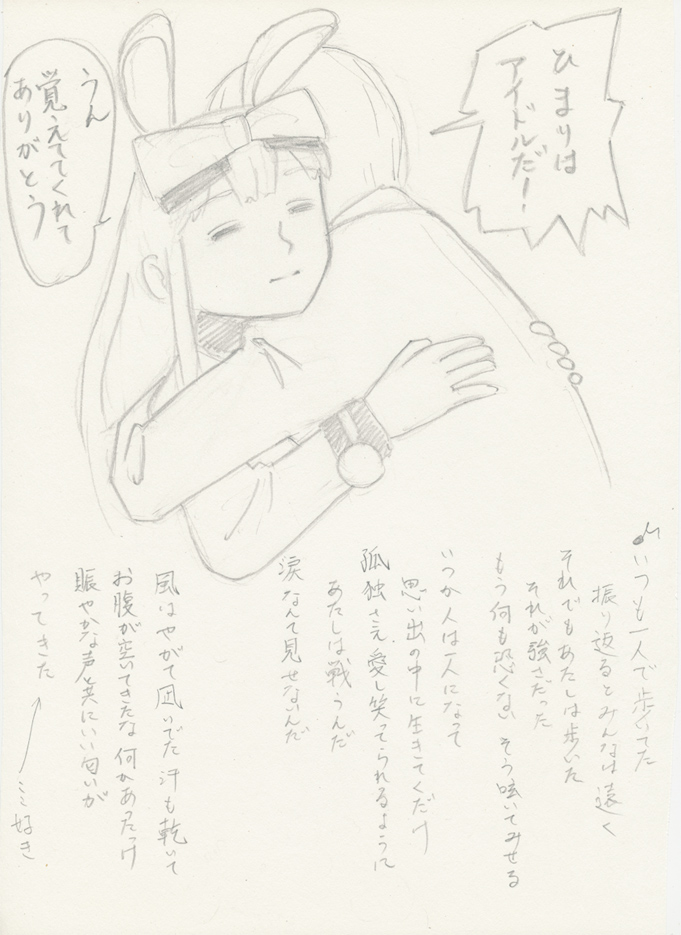 ひまりは
アイドルだ！
うん
覚えててくれて
ありがとう
♪いつも一人で歩いてた
振り返るとみんなは遠く
それでもあたしは歩いた
それが強さだった
もう何も恐くない そう呟いてみせる
いつか人は一人になって
思い出の中に生きてくだけ
孤独さえ愛し笑ってられるように
あたしは戦うんだ
涙なんて見せないんだ
風はやがて凪いでた 汗も乾いて
お腹が空いてきたな 何かあったっけ
賑やかな声と共にいい匂いが
やってきた
ここ好き